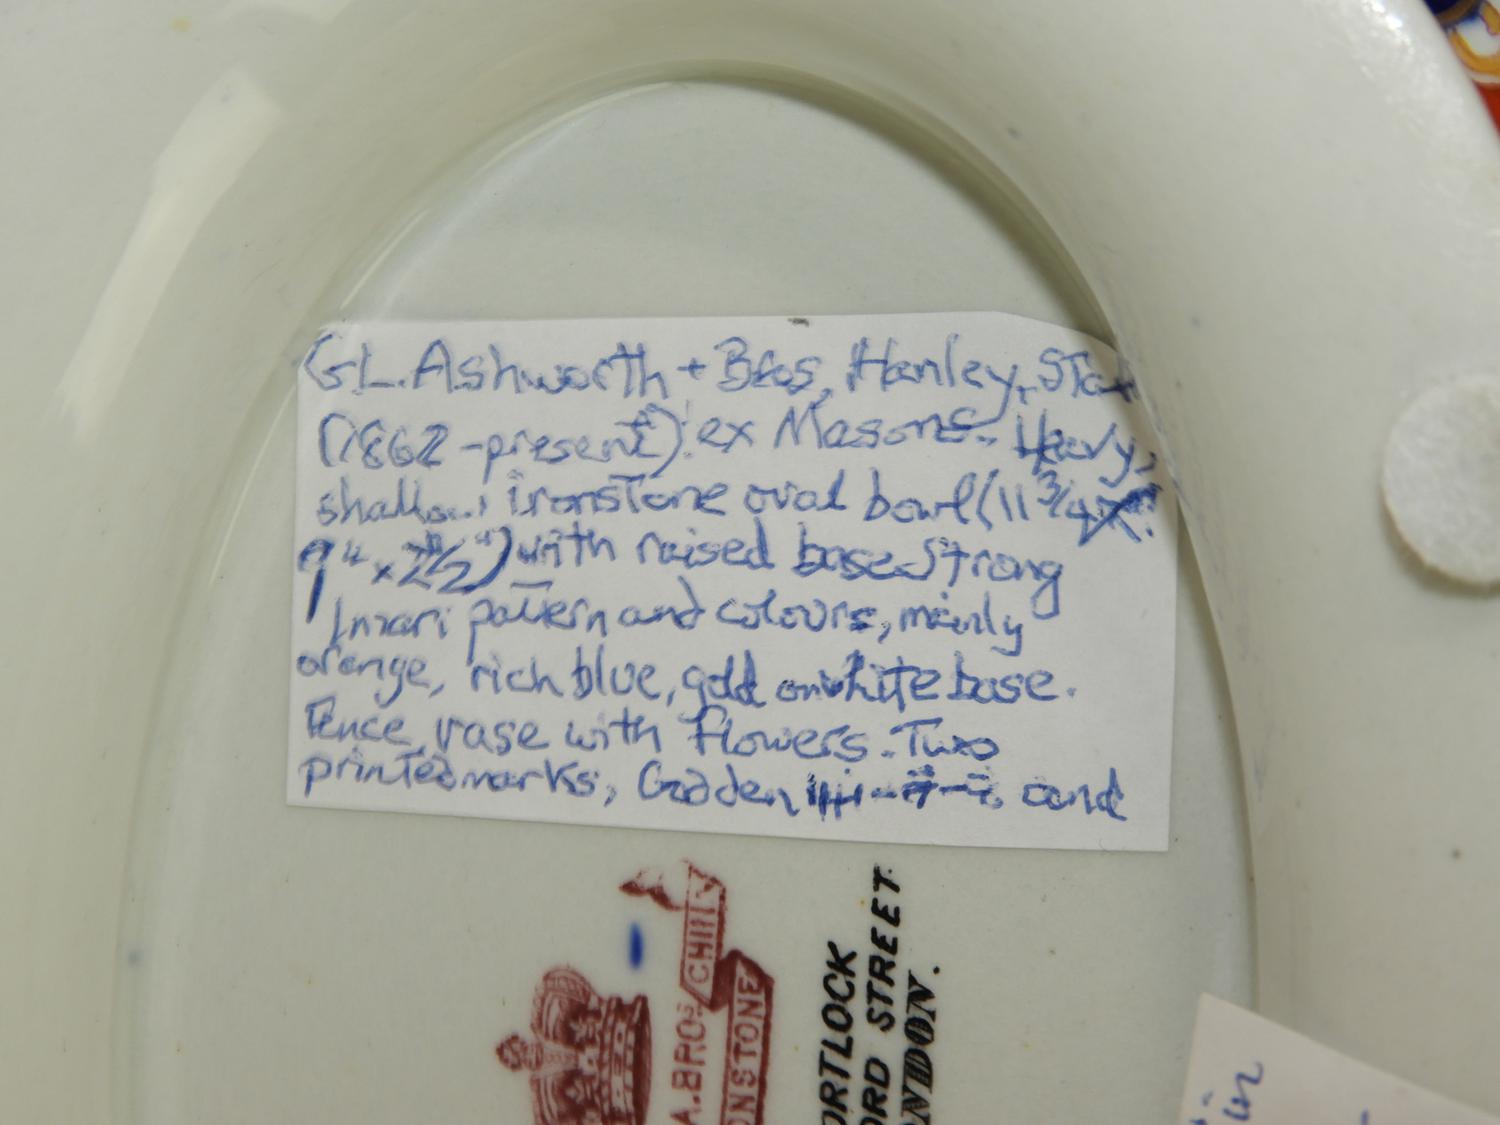 GL. Ashworth + Bros, Hanley, Staf
(1862 - present). ex Masons. Heavy,
shallow ironstone oval bowl (11 3/4 x
9" x 2 1/2") with raised base. Strong
Imari pattern and colours, mainly
orange, rich blue, gold on white base.
Fence, vase with flowers. Two
printed marks, Godden and
A.BROS/CHIN
ONSTONE
ORTLOCK
ORD STREET
ONDON.
in